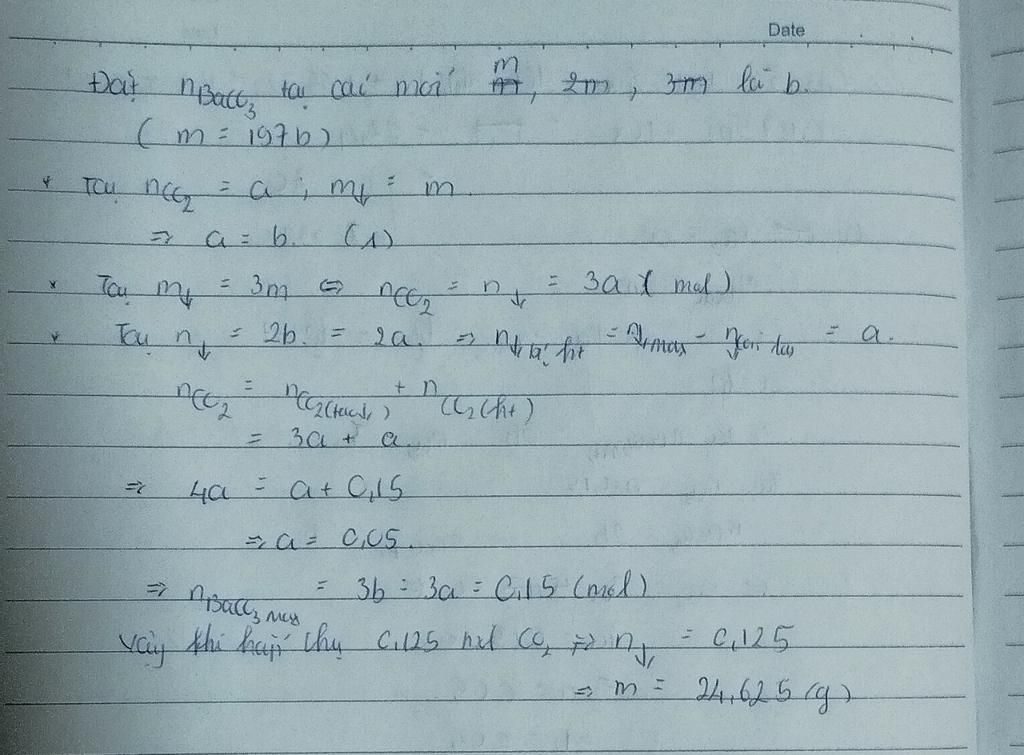 Date
Đặt nBaCO3 tại các mốc m, 2m, 3m là b.
( m = 197b)
* Tại nCO2 = a ; m↓ = m.
=> a = b. (1)
* Tại m↓ = 3m <=> nCO2 = n↓ = 3a ( mol)
* Tại n↓ = 2b = 2a. => n↓ bị ht = n↓max - n↓còn lại = a.
nCO2 = nCO2(tạo↓) + nCO2(ht)
= 3a + a.
=> 4a = a + 0,15
=> a = 0,05.
=> nBaCO3 max = 3b = 3a = 0,15 (mol)
Vậy khi hấp thụ 0,125 mol CO2 => n↓ = 0,125
=> m = 24,625 (g)